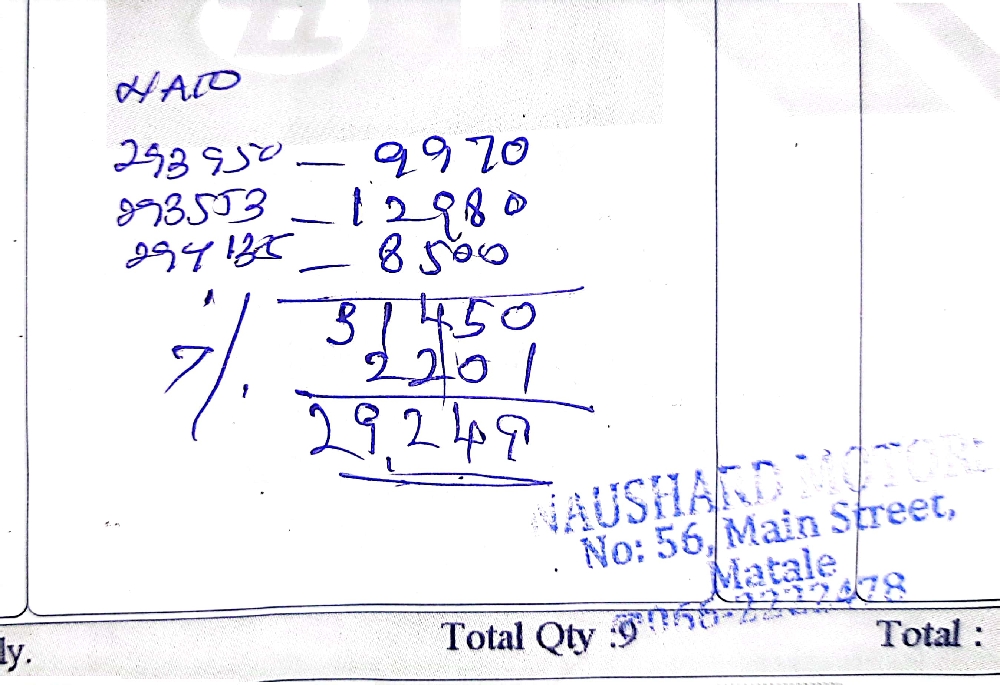 293950 — 9970
293553 — 12980
294135 — 8500
31450
7/. 2201
29,249
NAUSHARD MOTORS
No: 56, Main Street,
Matale
066-2222478
ly. Total Qty :9 Total :